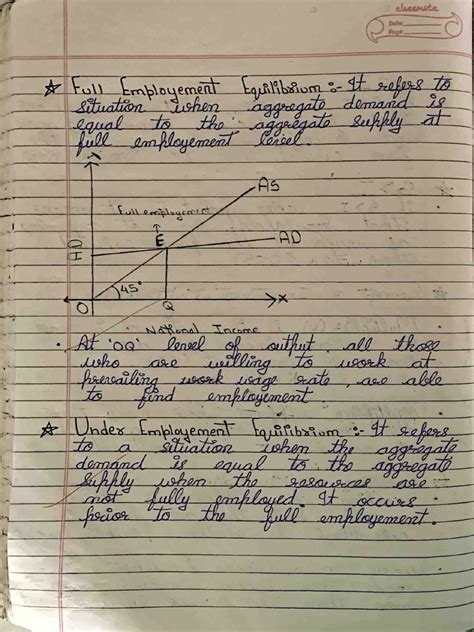 classmate
Date
Page
☆ Full Employement Equilibrium :- It refers to
situation when aggregate demand is
equal to the aggregate supply at
full employement level.
Y
AS
Full employement
E
AD
AD
45°
O
Q
X
National Income
• At 'OQ' level of output, all those
who are willing to work at
prevailing work wage rate, are able
to find employement.
☆ Under Employement Equilibrium :- It refers
to a situation when the aggregate
demand is equal to the aggregate
supply when the resources are
not fully employed. It occurs
prior to the full employement.